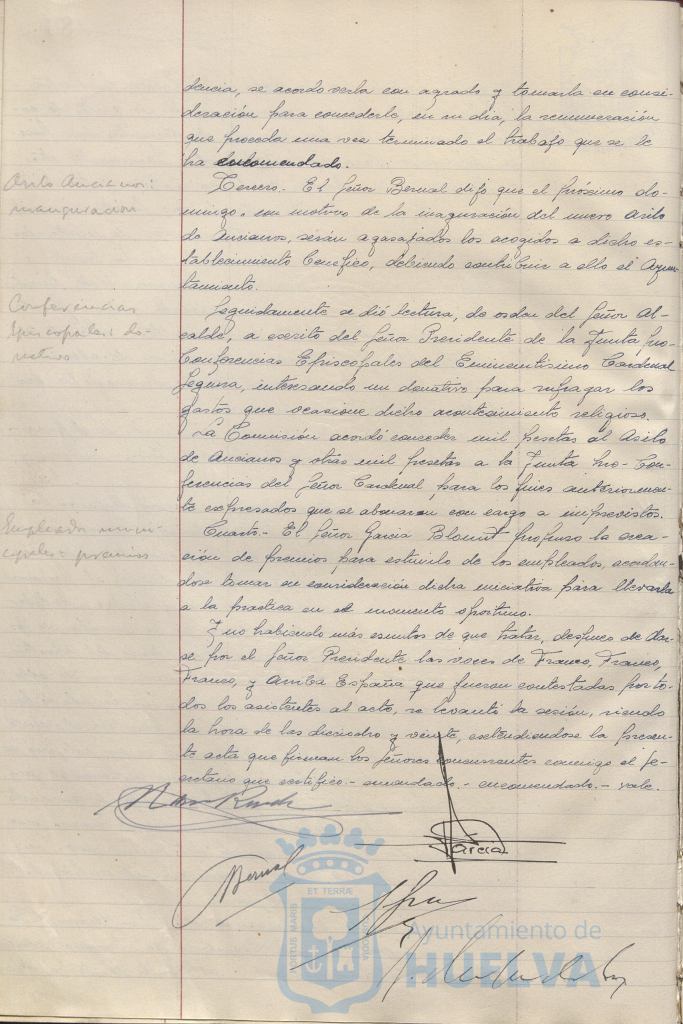 dencia, se acordo verla con agrado y tomarla en consi-
deración para concederle, en su dia, la remuneración
que proceda una vez terminado el trabajo que se le
ha encomendado.
Asilo Ancianos:
inauguracion
Tercero.- El Señor Bernal dijo que el próximo do-
mingo, con motivo de la inaguración del nuevo Asilo
de Ancianos, serán agasajados los acogidos a dicho es-
tablecimiento Benefico, debiendo contribuir a ello el Ayun-
tamiento.
Conferencias
Episcopales: do-
nativo
Seguidamente se dió lectura, de orden del Señor Al-
calde, a escrito del Señor Presidente de la Junta pro-
Conferencias Episcopales del Eminentisimo Cardenal
Segura, interesando un donativo para sufragar los
gastos que ocasione dicho acontecimiento religioso.
La Comisión acordó conceder mil pesetas al Asilo
de Ancianos y otras mil pesetas a la Junta pro-Con-
ferencias del Señor Cardenal para los fines anteriormen-
te expresados que se abonaran con cargo a imprevistos.
Empleados muni-
cipales: premios
Cuarto.- El Señor Garcia propuso la crea-
ción de premios para estimulo de los empleados, acordan-
dose tomar en consideración dicha iniciativa para llevarla
a la practica en el momento oportuno.
Y no habiendo más asuntos de que tratar, despues de dar-
se por el Señor Presidente las voces de Franco, Franco,
Franco, y Arriba España que fueron contestadas por to-
dos los asistentes al acto, se levantó la sesión, siendo
la hora de las dieciocho y veinte, extendiendose la presen-
te acta que firman los Señores concurrentes conmigo el Se-
cretario que certifico.- enmendado.- encomendado.- vale.
Garcia
Bernal
ET TERRÆ
PORTUS MARIS
CUSTODIA
Ayuntamiento de
HUELVA